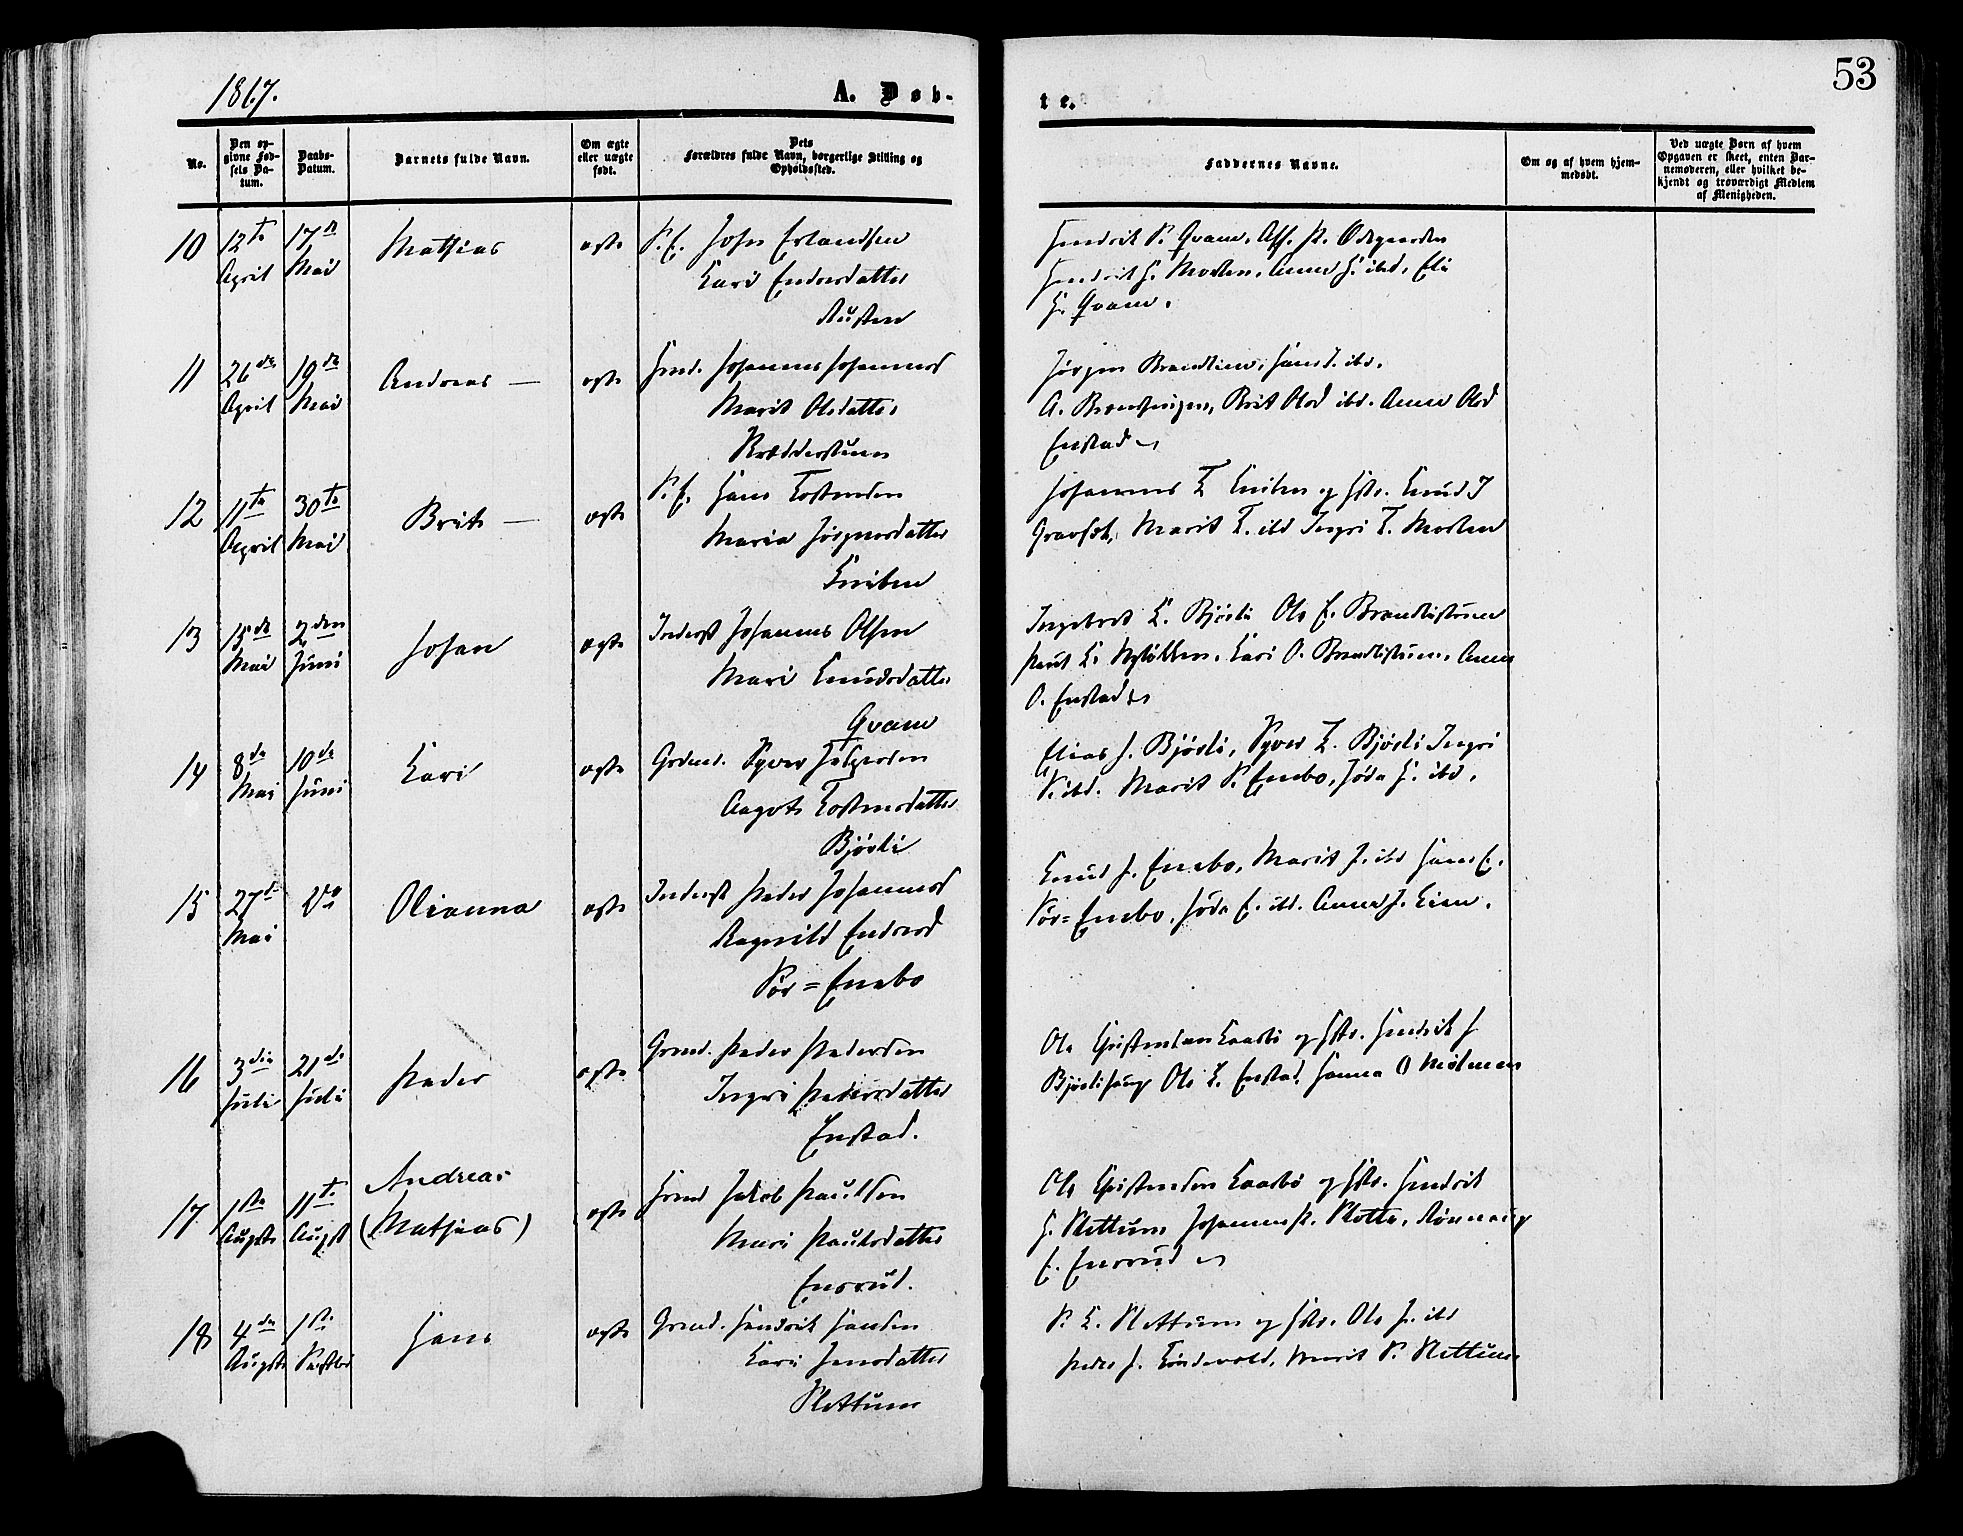 1867.
A. Døb-
te.
53
No.
Den op-
givne Fød-
sels Da-
tum.
Daabs-
Datum.
Barnets fulde Navn.
Om ægte
eller uægte
født.
Dets
Forældres fulde Navn, borgerlige Stilling og
Opholdssted.
Faddernes Navne.
Om og af hvem hjem-
medøbt.
Ved uægte Børn af hvem
Opgaven er skeet, enten Bar-
nemoderen, eller hvilket be-
kjendt og troværdigt Medlem
af Menigheden.
10
12te
April
17de
Mai
Mathias
ægte
S. E. John Erlandsen
Kari Endresdatter
Austen
Hendrik S. Qvam,
Hendrik H. Morken, Anne H. ibd, Eli
H. Qvam.
11
26de
April
19de
Mai
Andreas —
ægte
Johannes Johannesd
Marit Olsdatter
Jørgen Brandlien, Hans J. ibd.
Brit Olsd ibd. Anne Olsd
Enstad
12
11te
April
30te
Mai
Brit —
ægte
S. E. Hans Tostensen
Maria Jørgensdatter
Kniben
Johannes T Kniben og Hstr. Knud J
Marit T. ibd Ingri T. Morken
13
15de
Mai
2den
Juni
Johan
ægte
Inderst Johannes Olsen
Mari Knudsdatter
Qvam
Ingebret K. Bjørli Ole E. Brandlistuen
Kari O. Brandlistuen, Anne
O. Enstad
14
8de
Mai
10de
Juni
Kari
ægte
Grdmd. Syver
Aagot Tostensdatter
Bjørli
Elias J. Bjørli, Syver T. Bjørli Ingri
S. ibd. Marit S. Enebo, ibd.
15
27de
Mai
Do
Olianna
ægte
Inderst Peder Johannesd
Ragnild Endresd
Sør=Enebo
Knud J. Enebo, Marit J. ibd Hans E.
Sør=Enebo, E. ibd. Anne J. Lien.
16
3die
Juli
21de
Juli
Peder
ægte
Grmd. Peder Pedersen
Ingri Pedersdatter
Enstad.
Ole Christensen Kaasbø og Hstr. Hendrik J
Bjørlihaug Ole K. Enstad, Hanna O Mølmen
17
1ste
Augst
11te
Augst
Andreas
(Mathias)
ægte
Jakob Paulsen
Mari Paulsdatter
Ensrud.
Ole Christensen Kaasbø og Hstr. Hendrik
H. Slettum Johannes P. Stotte, Rønnaug
E. Ensrud
18
4de
Augst
1ste
Septbr
Hans
ægte
Grmd. Hendrik Hansen
Kari Jensdatter
Slettum
S. K. Slettum og Hstr. Ole J. ibd
Peder J. Marit S. Slettum